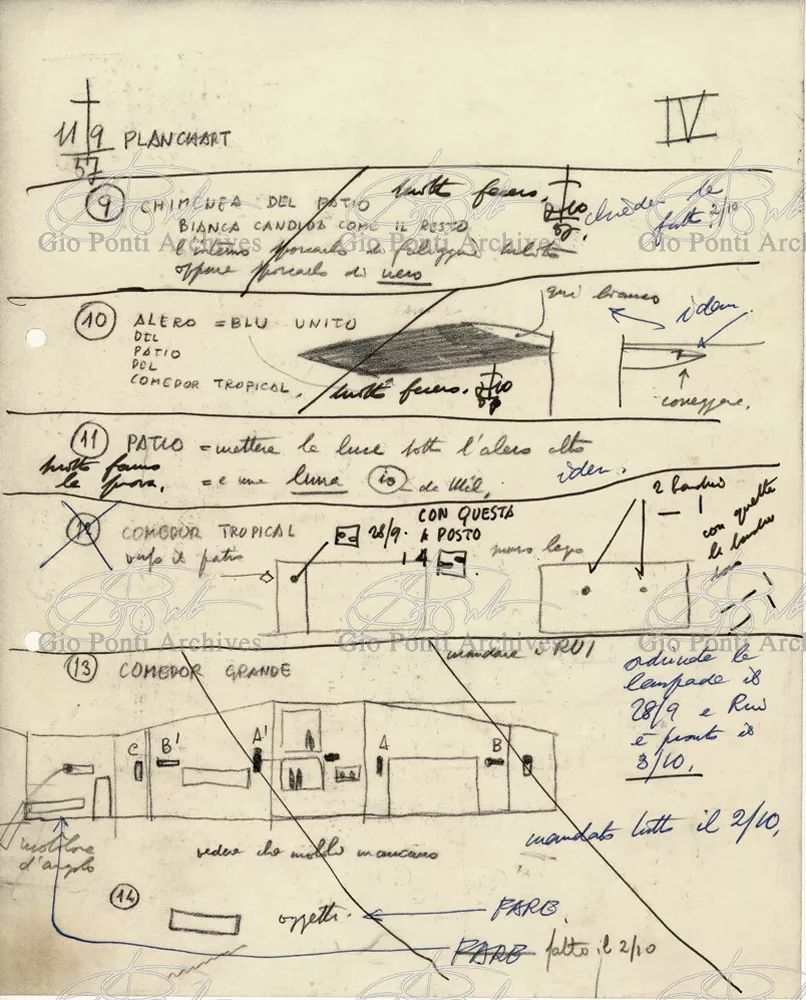 IV
11 9
57
PLANCHART
9 CHIMENEA DEL PATIO
BIANCA CANDIDA COME IL RESTO
l'interno sporcarlo di fuliggine
oppure sporcarlo di nero
2/10
57
chiedere le
foto 2/10
10 ALERO = BLU UNITO
DEL
PATIO
DEL
COMEDOR TROPICAL.
qui bianco
idem.
2/10
57
correggere.
11 PATIO = mettere la luce sotto l'alero alto
la prova. = e una luna io de Mil.
idem.
12 COMEDOR TROPICAL
verso il patio
28/9.
CON QUESTA
A POSTO
14
muro lungo
2
con queste
13 COMEDOR GRANDE
mandare a RUI
ordinate le
lampade il
28/9 e Rui
è pronto il
3/10.
C
B'
A'
A
B
d'angolo
vedere che mobili mancano
mandato tutto il 2/10.
14
oggetti.
FARB.
FARB fatto il 2/10
Gio Ponti Archives
Gio Ponti Archives
Gio Ponti Archives
Gio Ponti Archives